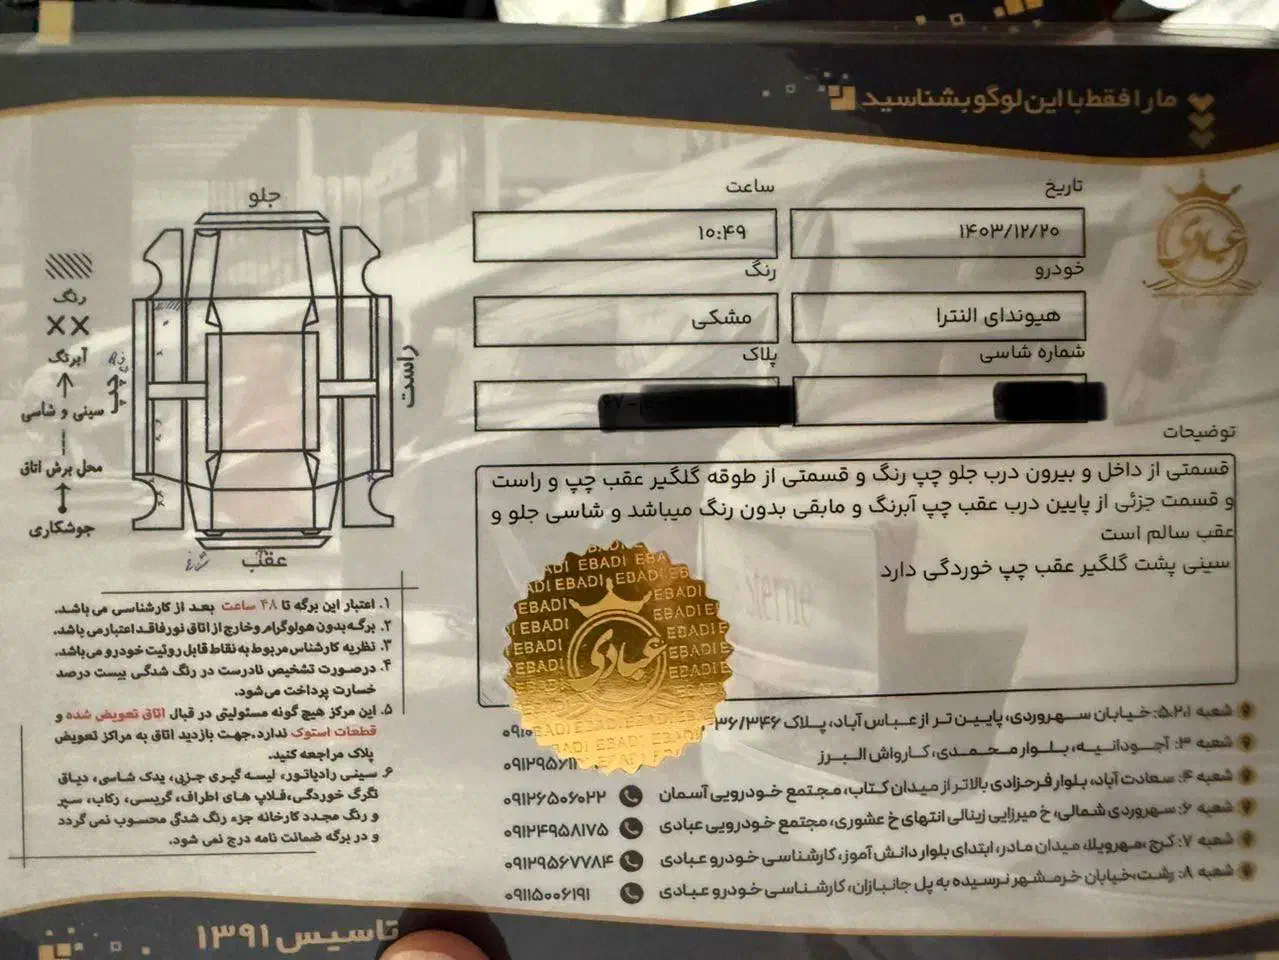 ما را فقط با این لوگو بشناسید
عبادی
تاریخ
ساعت
۱۴۰۳/۱۲/۲۰
۱۰:۴۹
خودرو
رنگ
هیوندای النترا
مشکی
شماره شاسی
پلاک
توضیحات
قسمتی از داخل و بیرون درب جلو چپ رنگ و قسمتی از طوقه گلگیر عقب چپ و راست
و قسمت جزئی از پایین درب عقب چپ آبرنگ و مابقی بدون رنگ میباشد و شاسی جلو و
عقب سالم است
سینی پشت گلگیر عقب چپ خوردگی دارد
جلو
راست
چپ
عقب
رنگ
آبرنگ
سینی و شاسی
محل برش اتاق
جوشکاری
۱. اعتبار این برگه تا ۴۸ ساعت بعد از کارشناسی می باشد.
۲. برگه بدون هولوگرام و خارج از اتاق نور فاقد اعتبار می باشد.
۳. نظریه کارشناس مربوط به نقاط قابل روئیت خودرو می‌باشد.
۴. درصورت تشخیص نادرست در رنگ شدگی بیست درصد
خسارت پرداخت می‌شود.
۵. این مرکز هیچ گونه مسئولیتی در قبال اتاق تعویض شده و
قطعات استوک ندارد،جهت بازدید اتاق به مراکز تعویض
پلاک مراجعه کنید.
۶. سینی رادیاتور، لیسه گیری جزیی، یدک شاسی، دیاق
تگرگ خوردگی،فلاپ های اطراف، گریسی، رکاب، سپر
و رنگ مجدد کارخانه جزء رنگ شدگی محسوب نمی گردد
و در برگه ضمانت نامه درج نمی شود.
EBADI EBADI EBADI
عبادی
شعبه ۵،۲،۱: خیابان سهروردی، پایین تر از عباس آباد، پلاک ۳۳۶/۳۴۶
شعبه ۳: آجودانیه، بلوار محمدی، کارواش البرز
شعبه ۴: سعادت آباد، بلوار فرحزادی بالاتر از میدان کتاب، مجتمع خودرویی آسمان ۰۹۱۲۶۵۰۶۰۲۲
شعبه ۶: سهروردی شمالی، خ میرزایی زینالی انتهای خ عشوری، مجتمع خودرویی عبادی ۰۹۱۲۴۹۵۸۱۷۵
شعبه ۷: کرج ،مهرویلا، میدان مادر، ابتدای بلوار دانش آموز، کارشناسی خودرو عبادی ۰۹۱۲۹۵۶۷۷۸۴
شعبه ۸: رشت،خیابان خرمشهر نرسیده به پل جانبازان، کارشناسی خودرو عبادی ۰۹۱۱۵۰۰۶۱۹۱
تاسیس ۱۳۹۱